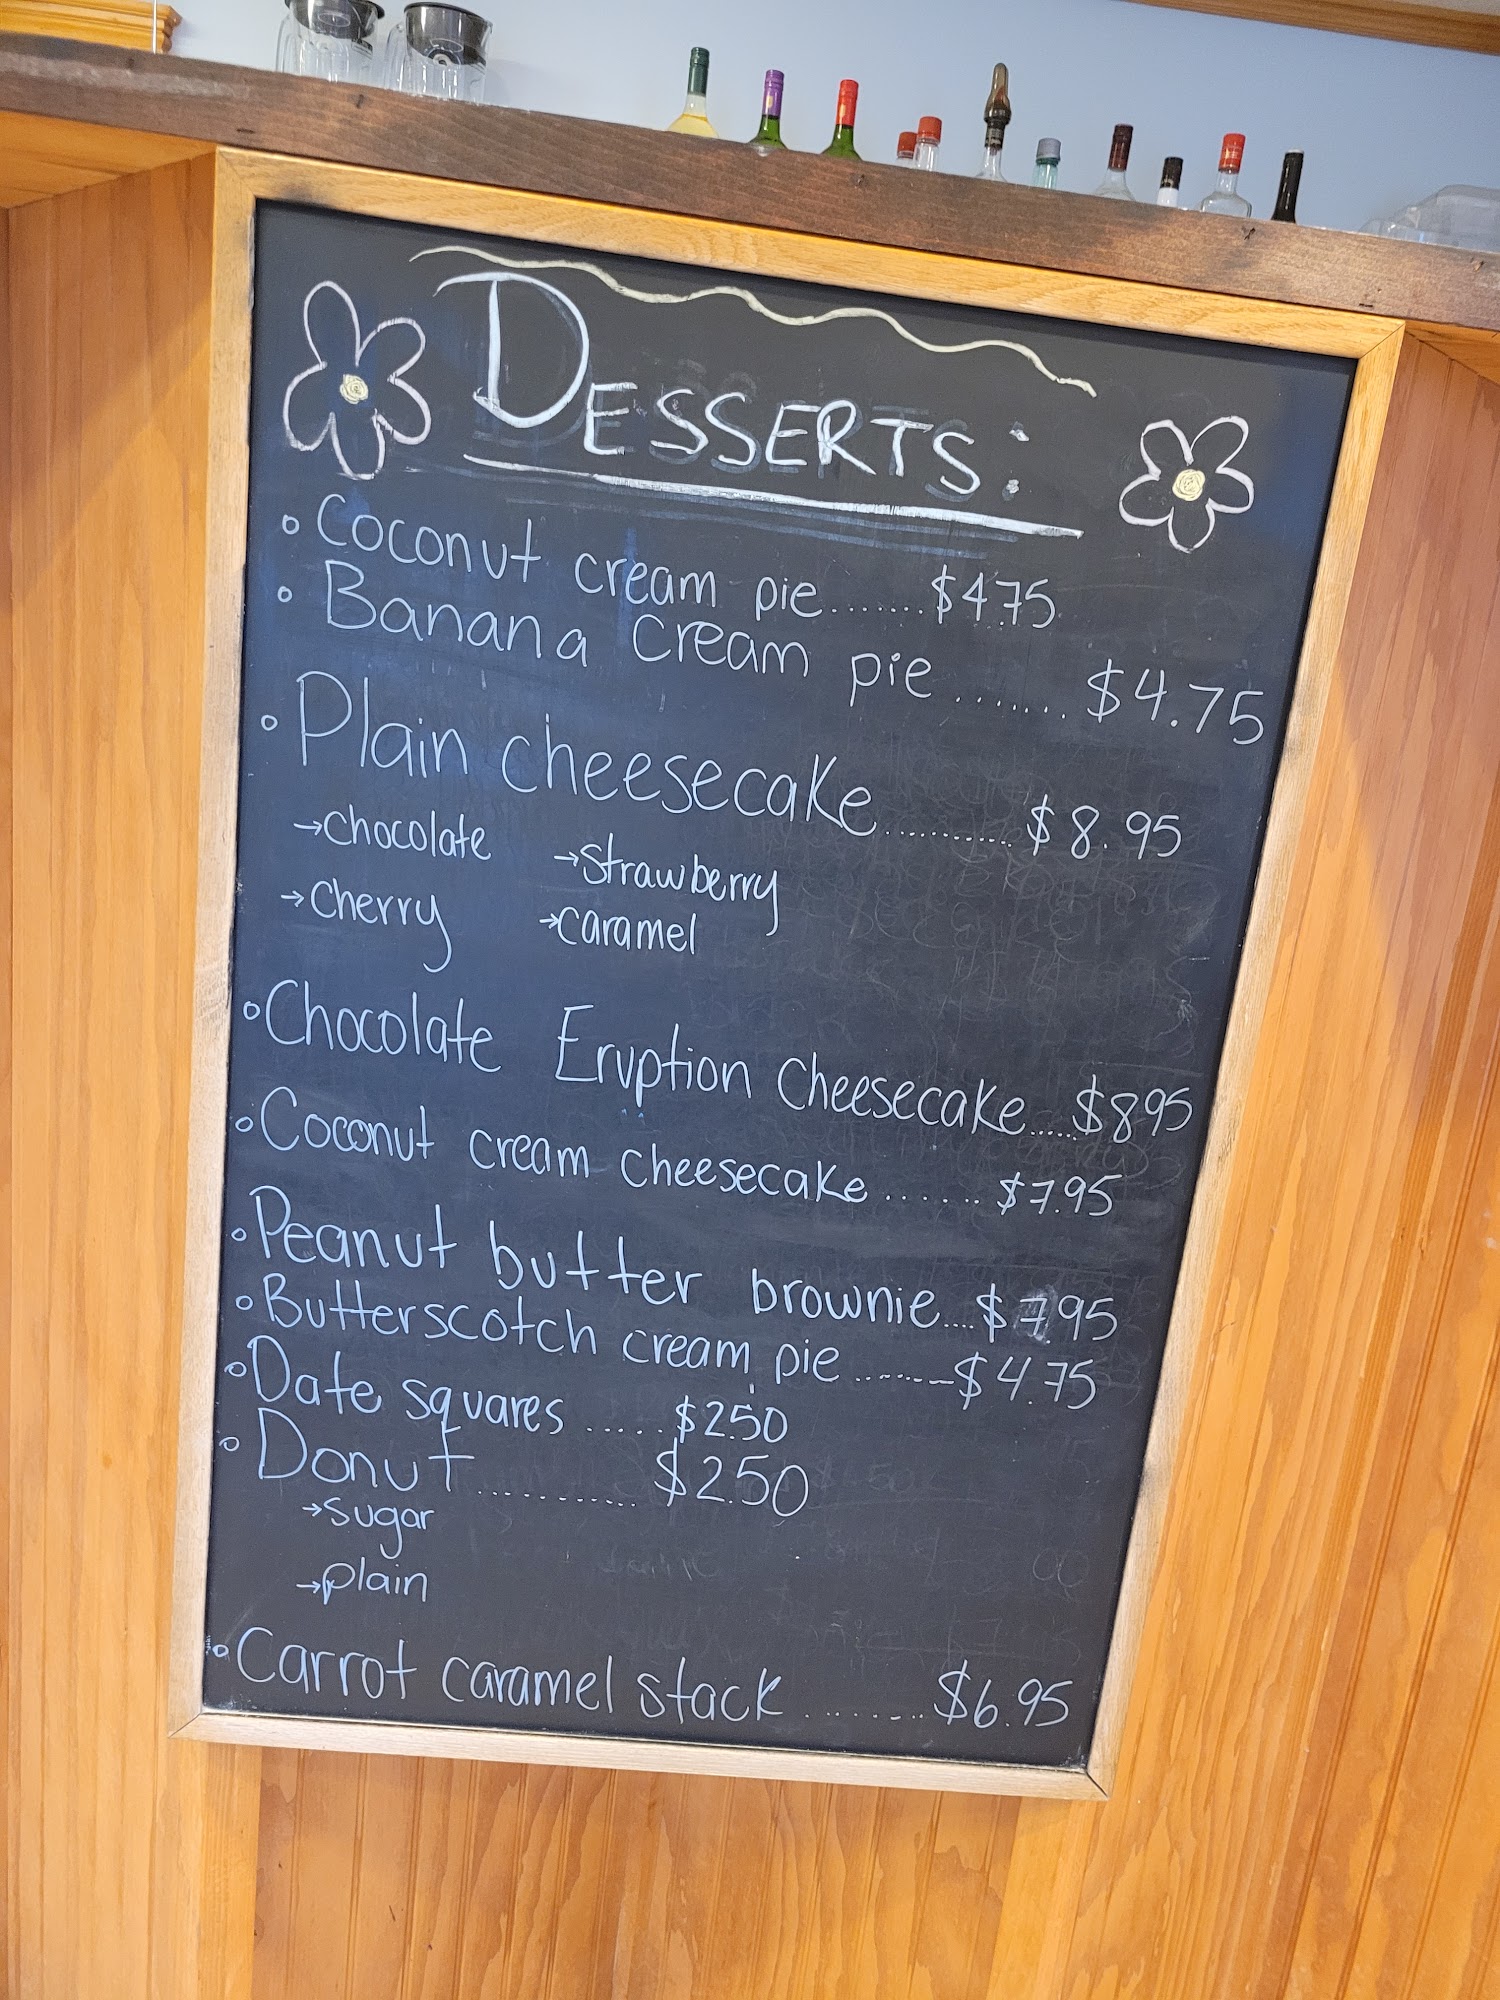 DESSERTS:
◦ Coconut cream pie.......$4.75
◦ Banana cream pie.......$4.75
◦ Plain cheesecake...........$8.95
→chocolate →strawberry
→cherry →caramel
◦ Chocolate Eruption Cheesecake.....$895
◦ Coconut cream cheesecake.......$7.95
◦ Peanut butter brownie....$7.95
◦ Butterscotch cream pie.......$4.75
◦ Date squares.....$2.50
◦ Donut............$2.50
→sugar
→plain
◦ Carrot caramel stack........$6.95